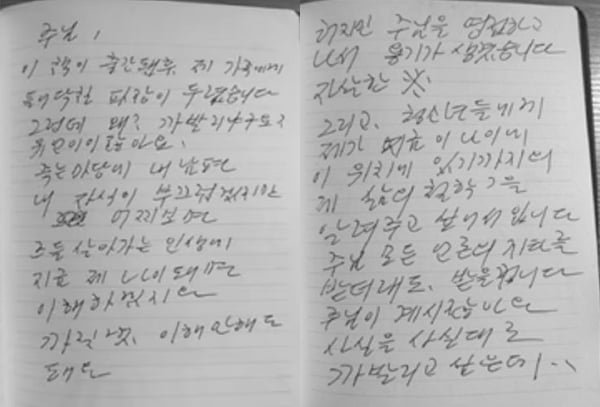 주님,
이 책이 출간된후, 제 가족에게
들어닥칠 파장이 두렵습니다
그런데 왜? 까발리냐구요?
이 많아요.
죽는마당에 내 남편
내 자식이 부끄럽겠지만
어찌보면
흐틀 살아가는 인생에
지금 제 나이돼면
이해하겠지요
까짓 것, 이해 안해도
돼요
하지만 주님을 영접하고
나서 용기가 생겼습니다
자살할 X.
그리고, 청소년들에게
제가 지금 이 나이에
이 위치에 있기까지의
제 삶의 철학을
알려주고 싶어서 입니다
주님 모든 언론의 지탄을
받더래도, 받을겁니다
주님이 계시잖습니까
사실을 사실대로
까발리고 싶은데...